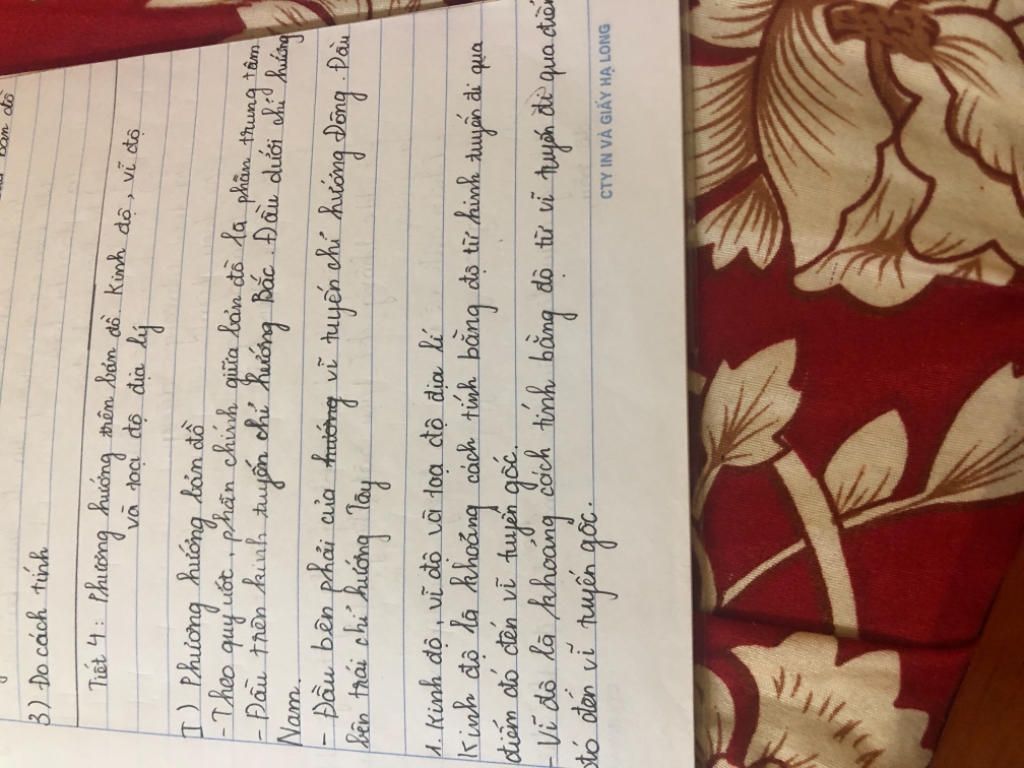 bản đồ
3) Đo cách tính
Tiết 4: Phương hướng trên bản đồ. Kinh độ, vĩ độ
và toạ độ địa lý
I) Phương hướng bản đồ
- Theo quy ước, phần chính giữa bản đồ là phần trung tâm
- Đầu trên kinh tuyến chỉ hướng Bắc. Đầu dưới chỉ hướng
Nam.
- Đầu bên phải của hướng vĩ tuyến chỉ hướng Đông. Đầu
bên trái chỉ hướng Tây
1. Kinh độ, vĩ độ và toạ độ địa lí
Kinh độ là khoảng cách tính bằng độ từ kinh tuyến đi qua
điểm đó đến vĩ tuyến gốc.
- Vĩ độ là khoảng cách tính bằng độ từ vĩ tuyến đi qua điểm
đó đến vĩ tuyến gốc.
CTY IN VÀ GIẤY HẠ LONG